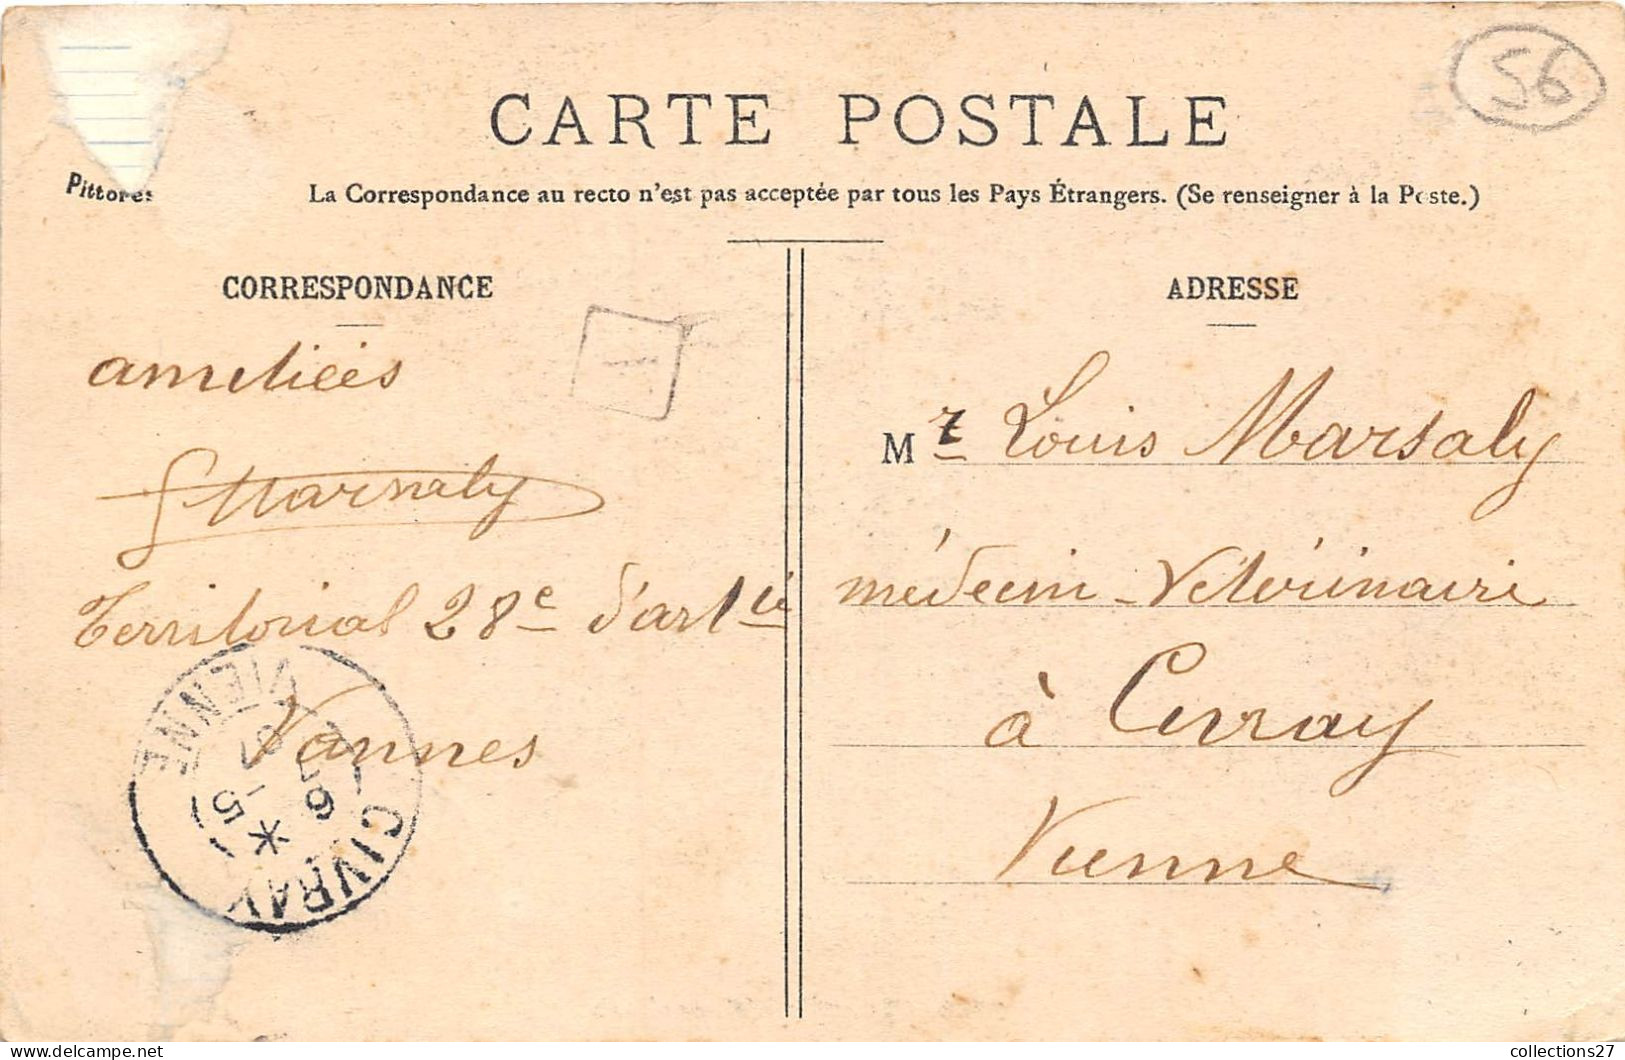 56
CARTE POSTALE
Pittores
La Correspondance au recto n'est pas acceptée par tous les Pays Étrangers. (Se renseigner à la Poste.)
CORRESPONDANCE
amitiées
Marsaly
Territorial 28e d'artie
Vannes
CIVRAY
VIENNE
6 -5
ADRESSE
Mr Louis Marsaly
médecin-Vétérinaire
à Civray
Vienne
collections27